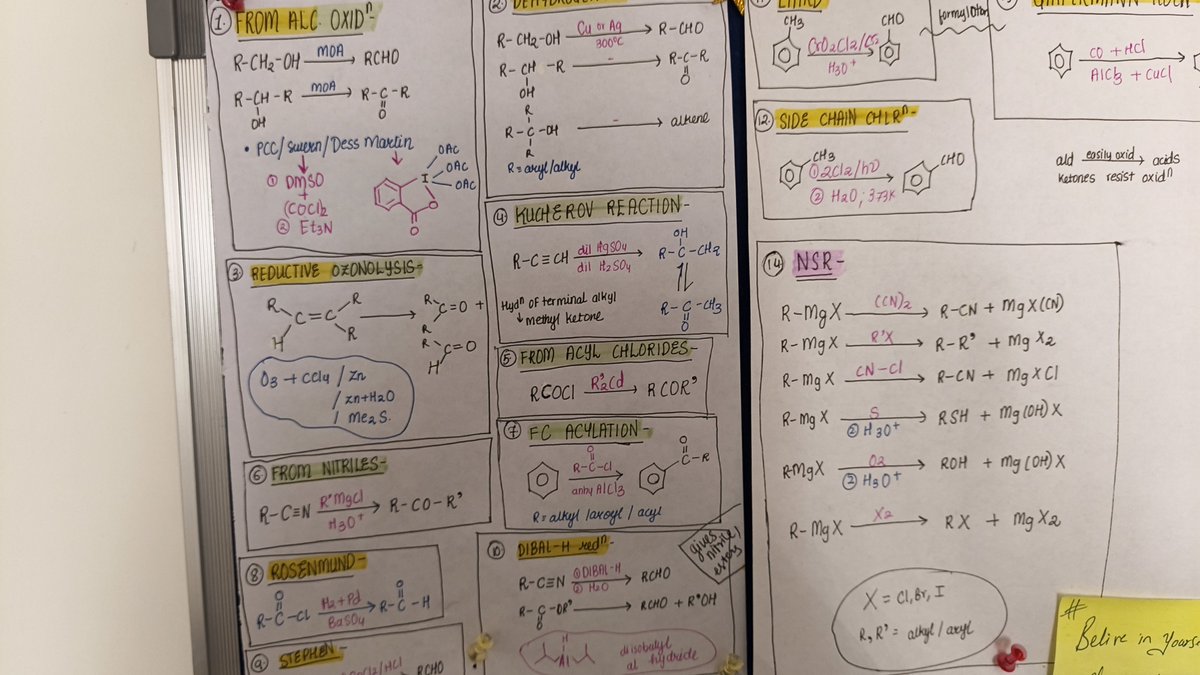 ① FROM ALC. OXIDⁿ-
R-CH₂-OH MOA → RCHO
R-CH-R MOA → R-C-R
OH O
• PCC/Swern/Dess Martin
① DMSO
+
(COCl)₂
② Et₃N
OAc
I OAc
OAc
O
O
② DEHYDROGEN
R-CH₂-OH Cu or Ag → R-CHO
300°C
R-CH-R - → R-C-R
OH O
R
R-C-OH - → alkene
R
R = aryl/alkyl
③ REDUCTIVE OZONOLYSIS-
R R R
C=C → C=O +
H R R
R
C=O
H
O₃ + CCl₄ / Zn
/ Zn+H₂O
/ Me₂S.
④ KUCHEROV REACTION-
OH
R-C≡CH dil HgSO₄ → R-C-CH₂
dil H₂SO₄
Hydⁿ of terminal alkyl
↓ methyl ketone
R-C-CH₃
O
⑤ FROM ACYL CHLORIDES-
RCOCl R'₂Cd → RCOR'
⑥ FROM NITRILES-
R-C≡N R'MgCl → R-CO-R'
H₃O⁺
⑦ FC ACYLATION-
O
R-C-Cl →
anhy AlCl₃
O
C-R
R = alkyl / aroyl / acyl
⑧ ROSENMUND-
O O
R-C-Cl H₂+Pd → R-C-H
BaSO₄
⑨ STEPHEN-
RCHO
⑩ DIBAL-H redⁿ-
gives
nitrile,
esters
R-C≡N ① DIBAL-H → RCHO
② H₂O
R-C-OR' → RCHO + R'OH
O
H
Al
diisobutyl
al hydride
CH₃ CHO
CrO₂Cl₂/CS₂ →
H₃O⁺
formylation
CO + HCl →
AlCl₃ + CuCl
⑫ SIDE CHAIN CHLRⁿ-
CH₃ ① 2Cl₂/hν → CHO
② H₂O; 373K
ald easily oxid → acids
ketones resist oxidⁿ
⑭ NSR-
R-MgX (CN)₂ → R-CN + MgX(CN)
R-MgX R'X → R-R' + MgX₂
R-MgX CN-Cl → R-CN + MgXCl
R-MgX S → RSH + Mg(OH)X
② H₃O⁺
R-MgX O₂ → ROH + Mg(OH)X
② H₃O⁺
R-MgX X₂ → RX + MgX₂
X = Cl, Br, I
R, R' = alkyl / aryl
#
Belive in Yours